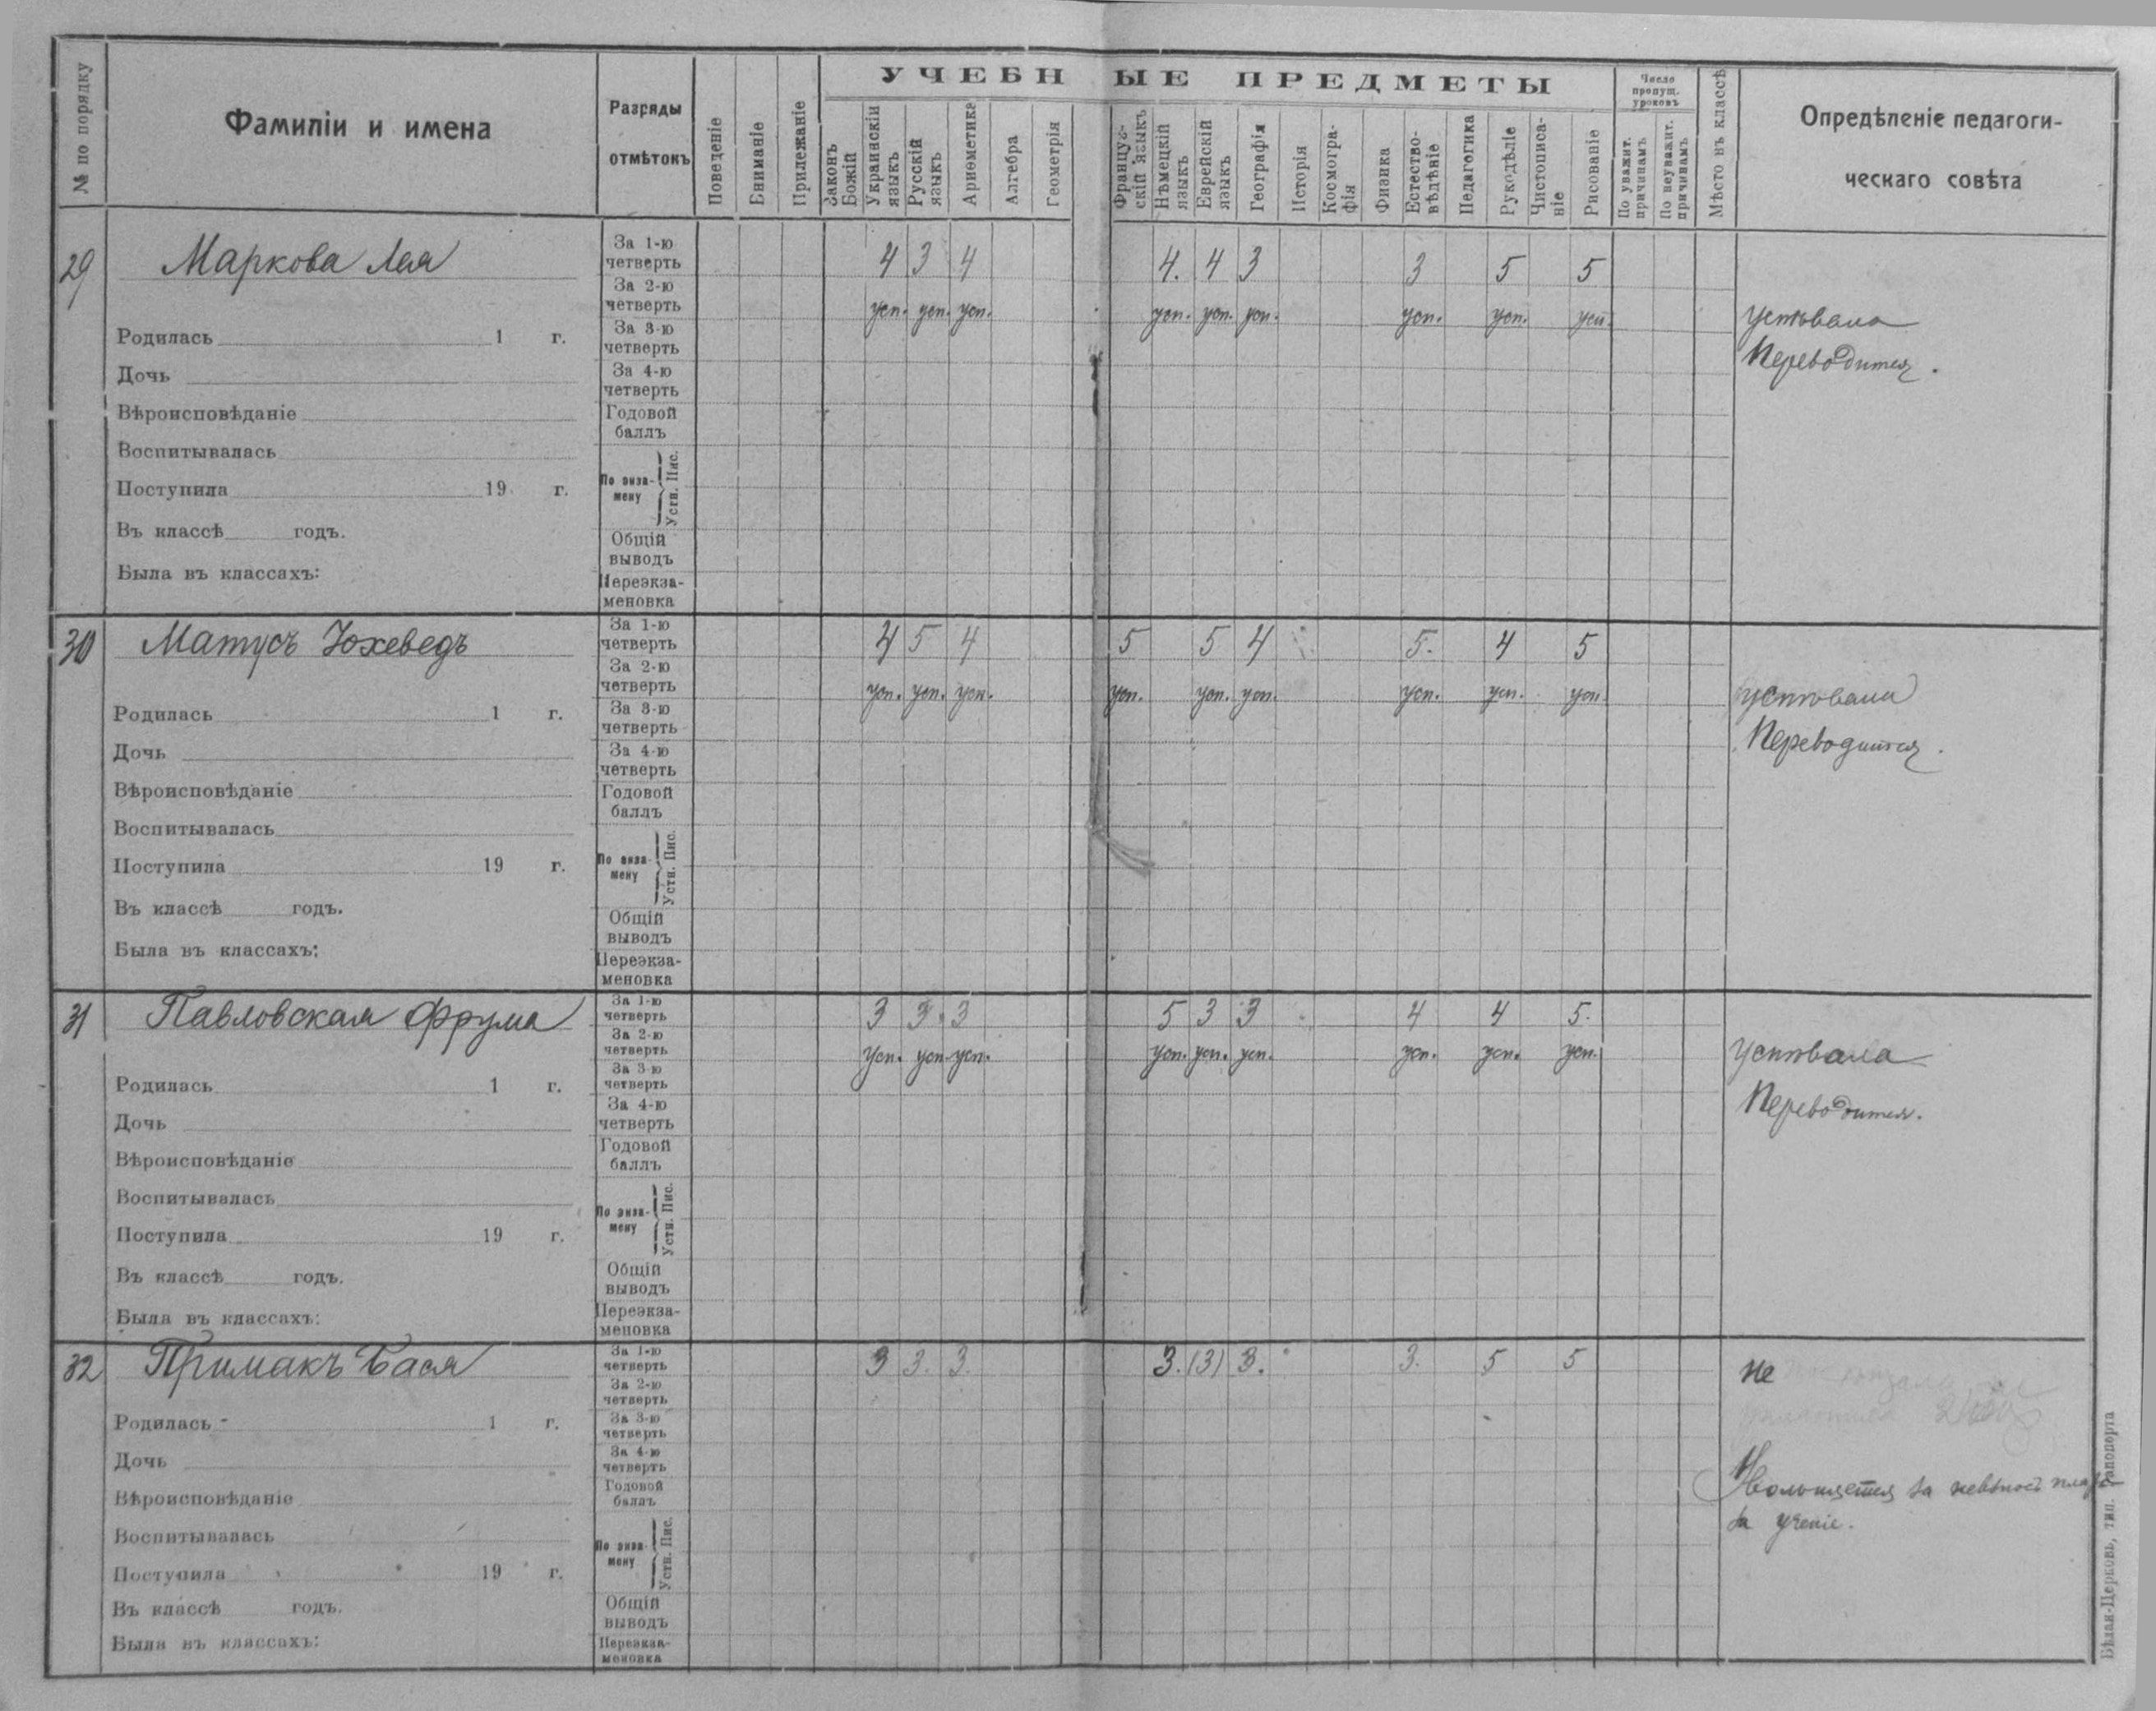 УЧЕБНЫЕ ПРЕДМЕТЫ
№ по порядку
Фамиліи и имена
Разряды
отмѣтокъ
Поведеніе
Вниманіе
Прилежаніе
Законъ Божій
Украинскій языкъ
Русскій языкъ
Ариѳметика
Алгебра
Геометрія
Француз-скій языкъ
Нѣмецкій языкъ
Еврейскій языкъ
Географія
Исторія
Космогра-фія
Физика
Естество-вѣдѣніе
Педагогика
Рукодѣліе
Чистописа-ніе
Рисованіе
Число пропущ. уроковъ
По уважит. причинамъ
По неуважит. причинамъ
Мѣсто въ классѣ
Опредѣленіе педагоги-
ческаго совѣта
29 Маркова Лея
За 1-ю четверть 4 3 4 4. 4 3 3 5 5
За 2-ю четверть усп. усп. усп. усп. усп. усп. усп. усп. усп.
успѣвала
Переводится.
Родилась 1 г.
За 3-ю четверть
Дочь
За 4-ю четверть
Вѣроисповѣданіе
Годовой баллъ
Воспитывалась
Поступила 19 г.
По экза-мену Устн. Пис.
Въ классѣ годъ.
Общій выводъ
Была въ классахъ:
Переэкза-меновка
30 Матусъ Юхеведъ
За 1-ю четверть 4 5 4 5 5 4 5. 4 5
За 2-ю четверть усп. усп. усп. усп. усп. усп. усп. усп. усп.
успѣвала
Переводится.
Родилась 1 г.
За 3-ю четверть
Дочь
За 4-ю четверть
Вѣроисповѣданіе
Годовой баллъ
Воспитывалась
Поступила 19 г.
По экза-мену Устн. Пис.
Въ классѣ годъ.
Общій выводъ
Была въ классахъ:
Переэкза-меновка
31 Павловская Фрума
За 1-ю четверть 3 3 3 5 3 3 4 4 5.
За 2-ю четверть усп. усп. усп. усп. усп. усп. усп. усп. усп.
успѣвала
Переводится.
Родилась 1 г.
За 3-ю четверть
Дочь
За 4-ю четверть
Вѣроисповѣданіе
Годовой баллъ
Воспитывалась
Поступила 19 г.
По экза-мену Устн. Пис.
Въ классѣ годъ.
Общій выводъ
Была въ классахъ:
Переэкза-меновка
32 Примакъ Бася
За 1-ю четверть 3 3. 3. 3. (3) 3. 3. 5 5
За 2-ю четверть
не
Родилась 1 г.
За 3-ю четверть
Дочь
За 4-ю четверть
Увольняется за невзносъ платы
за ученіе.
Вѣроисповѣданіе
Годовой баллъ
Воспитывалась
Поступила 19 г.
По экза-мену Устн. Пис.
Въ классѣ годъ.
Общій выводъ
Была въ классахъ:
Переэкза-меновка
Бѣлая-Церковь, тип. Рапопорта